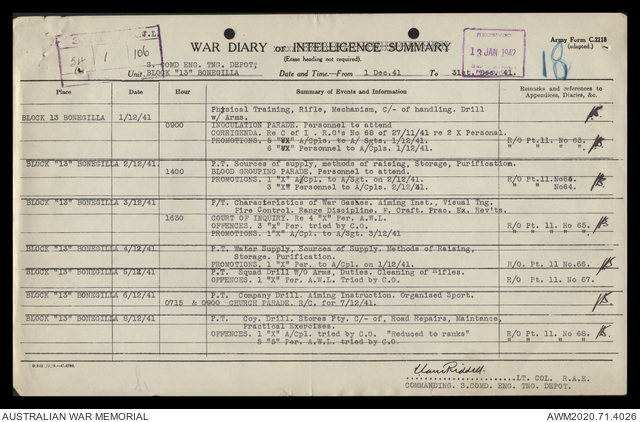 WAR DIARY or INTELLIGENCE SUMMARY
(Erase heading not required).
Army Form C.2118
(adapted.)
13 JAN 1942
18
54 1 106
S. COMD ENG. TNG. DEPOT,
Unit BLOCK "13" BONEGILLA Date and Time:—From 1 Dec.41 To 31st. Dec. 41.
Place Date Hour Summary of Events and Information Remarks and references to
Appendices, Diaries, &c.
Physical Training, Rifle, Mechanism, C/- of handling. Drill
BLOCK 13 BONEGILLA 1/12/41 w/ Arms.
0900 INOCULATION PARADE. Personnel to attend
CORRIGENDA. Re C of I . R.O's No 68 of 27/11/41 re 2 X Personal.
PROMOTIONS. 5 "X" A/Cpls. to A/ Sgts. 1/12/41. R/O Pt.11. No 63.
6 "X" Personnel to A/Cpls. 1/12/41. " "
BLOCK "13" BONEGILLA 2/12/41 P.T. Sources of supply, methods of raising, Storage, Purification.
1400 BLOOD GROUPING PARADE. Personnel to attend.
PROMOTIONS. 1 "X" A/Cpl. to A/Sgt. on 2/12/41. R/O Pt.11. No64.
3 "X" Personnel to A/Cpls. 2/12/41. " " No64.
BLOCK "13" BONEGILLA 3/12/41 P/T. Characteristics of War Gasses. Aiming Inst., Visual Tng.
Fire Control. Range Discipline. F. Craft. Prac. Ex. Rev'ts.
1630 COURT OF INQUIRY. Re 4 "X" Per. A.W.L.
OFFENCES. 3 "x" Per. tried by C.O. R/O. Pt. 11. No 65.
PROMOTIONS. 1"X" A/Cpl. to A/Sgt. 3/12/41 " " "
BLOCK "13" BONEGILLA 4/12/41 P.T. Water Supply, Sources of Supply. Methods of Raising,
Storage. Purification.
PROMOTIONS. 1 "X" Per. to A/Cpl. on 1/12/41. R/O Pt. 11. No.66.
BLOCK "13" BONEGILLA 5/12/41 P.T. Squad Drill W/O Arms, Duties. Cleaning of Rifles.
OFFENCES. 1 "X" Per. A.W.L. Tried by C.O. R/O Pt. 11. No 67.
BLOCK "13" BONEGILLA 6/12/41 P.T. Company Drill. Aiming Instruction. Organised Sport.
0715 & 0900 CHURCH PARADE. R/C. for 7/12/41.
BLOCK "13" BONEGILLA 8/12/41 P.T. Coy. Drill. Stores Pty. C/- of, Road Repairs, Maintance,
Practical Exercises.
OFFENCES. 1 "X" A/Cpl. tried by C.O. "Reduced to ranks" R/O Pt. 11. No 68.
5 "S" Per. A.W.L. tried by C.O. " " "
LT. COL. R.A.E.
COMMANDING. S.COMD. ENG. TNG. DEPOT.
AUSTRALIAN WAR MEMORIAL AWM2020.71.4026